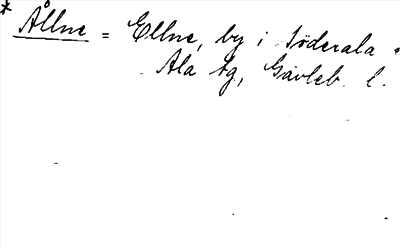 * Ållne = Ellne, by i Söderala s.
Ala tg, Gävleb. l.